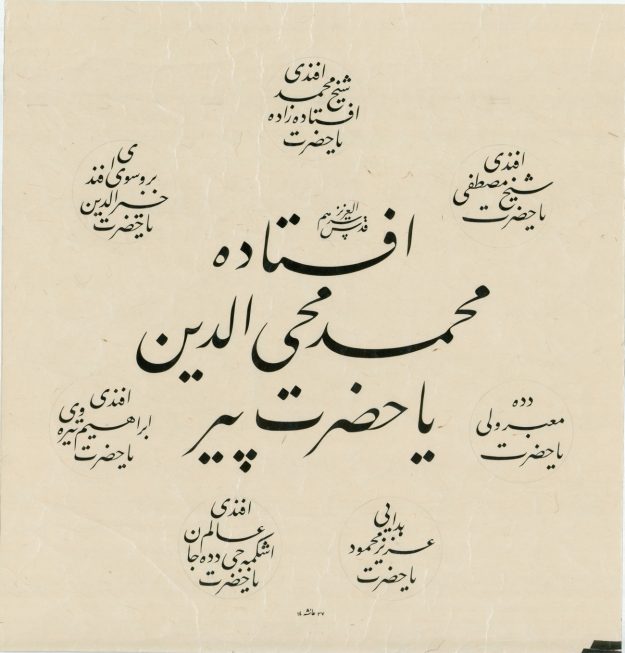 یا حضرت
افتاده زاده
شیخ محمد
افندی
یا حضرت
شیخ مصطفی
افندی
یا حضرت
خضر الدین
بروسوی افند
ی
یا حضرت پیر
محمد محی الدین
افتاده
قدس سرهم
العزیز
یا حضرت
معبر ولی
دده
یا حضرت
ابراهیم تیره
وی
افندی
یا حضرت
عزیز محمود
هدایی
یا حضرت
اشکمبه جی دده جا
ن عالم
افندی